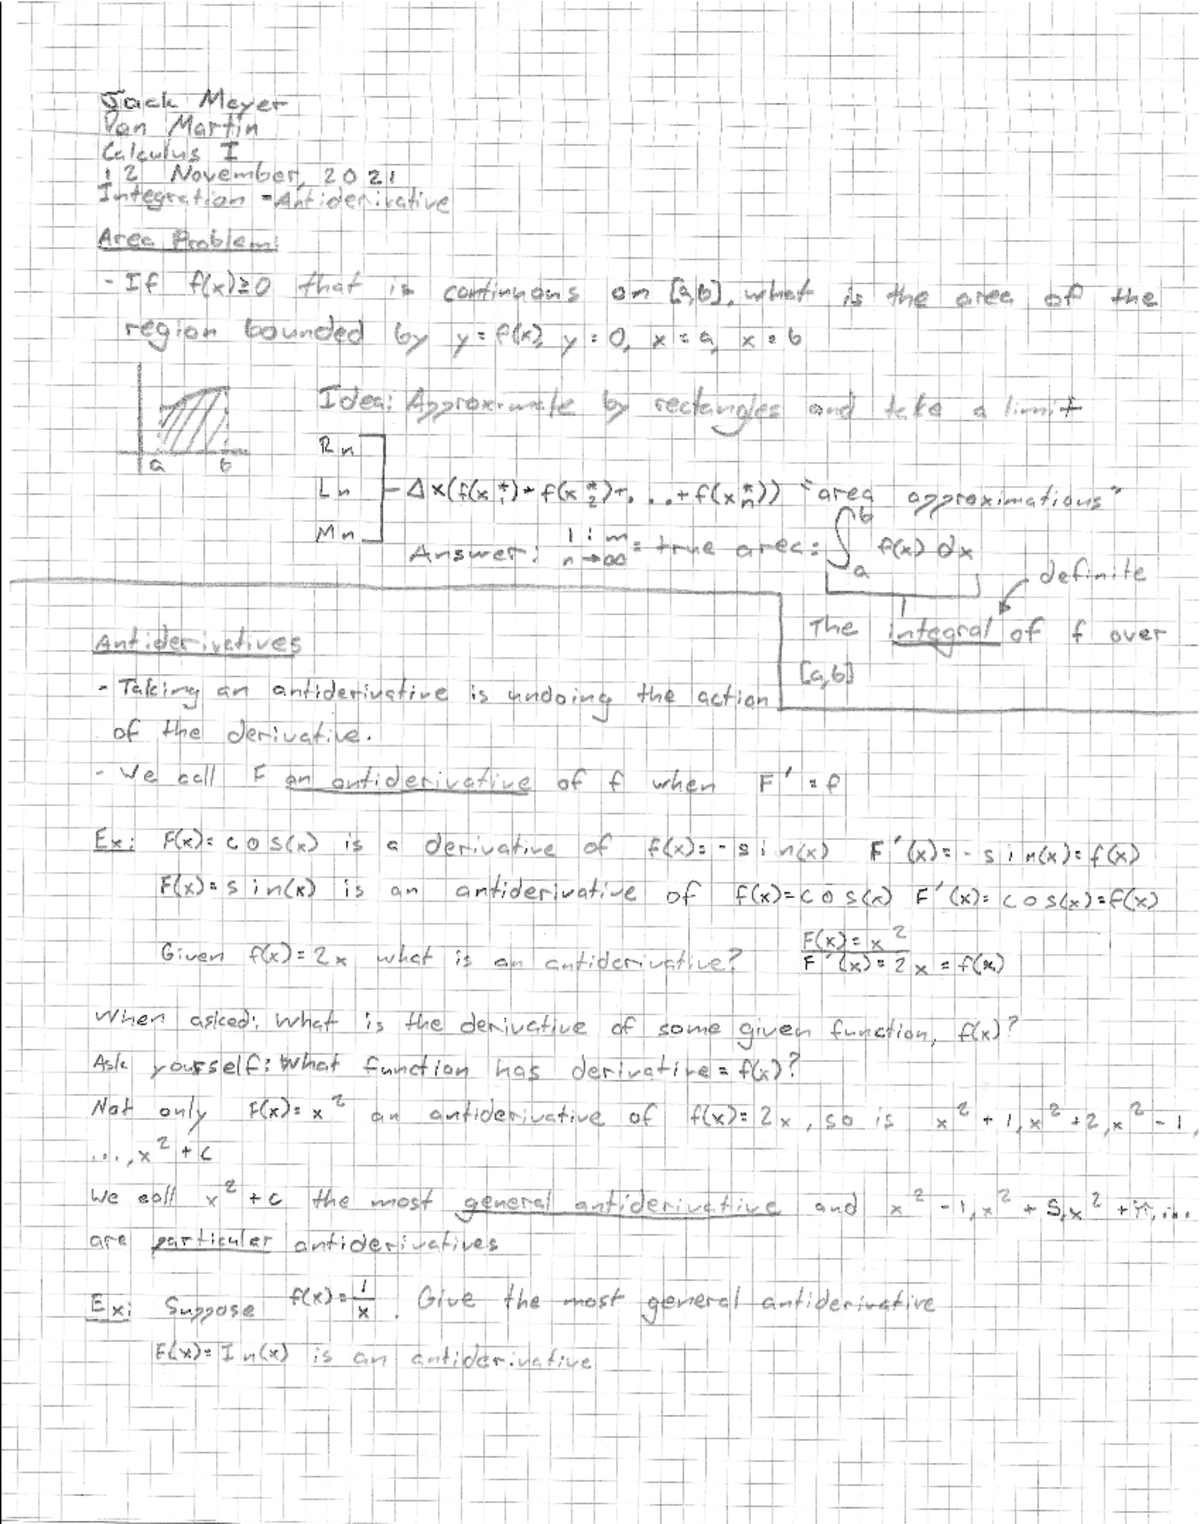 Jack Meyer
Dan Martin
Calculus I
12 November, 2021
Integration - Antiderivative
Area Problem:
- If f(x)≥0 that is continuous on [a,b], what is the area of the
region bounded by y=f(x), y=0, x=a, x=b
Idea: Approximate by rectangles and take a limit
a b
Rn
Ln - Δx(f(x₁*)+f(x₂*)+...+f(xₙ*)) "area approximations"
Mn
Answer: lim n→∞ = true area = ∫ₐᵇ f(x) dx
definite
The integral of f over
[a,b]
Antiderivatives
- Taking an antiderivative is undoing the action
of the derivative.
- We call F an antiderivative of f when F' = f
Ex: F(x)=cos(x) is a derivative of f(x)=-sin(x) F'(x)=-sin(x)=f(x)
F(x)=sin(x) is an antiderivative of f(x)=cos(x) F'(x)=cos(x)=f(x)
Given f(x)=2x what is an antiderivative? F(x)=x²
F'(x)=2x=f(x)
When asked: What is the derivative of some given function, f(x)?
Ask yourself: What function has derivative = f(x)?
Not only F(x)=x² an antiderivative of f(x)=2x, so is x²+1, x²+2, x²-1,
..., x²+c
We call x²+c the most general antiderivative and x²-1, x²+5, x²+π, ...
are particular antiderivatives
Ex: Suppose f(x)=1/x. Give the most general antiderivative
F(x)=In(x) is an antiderivative